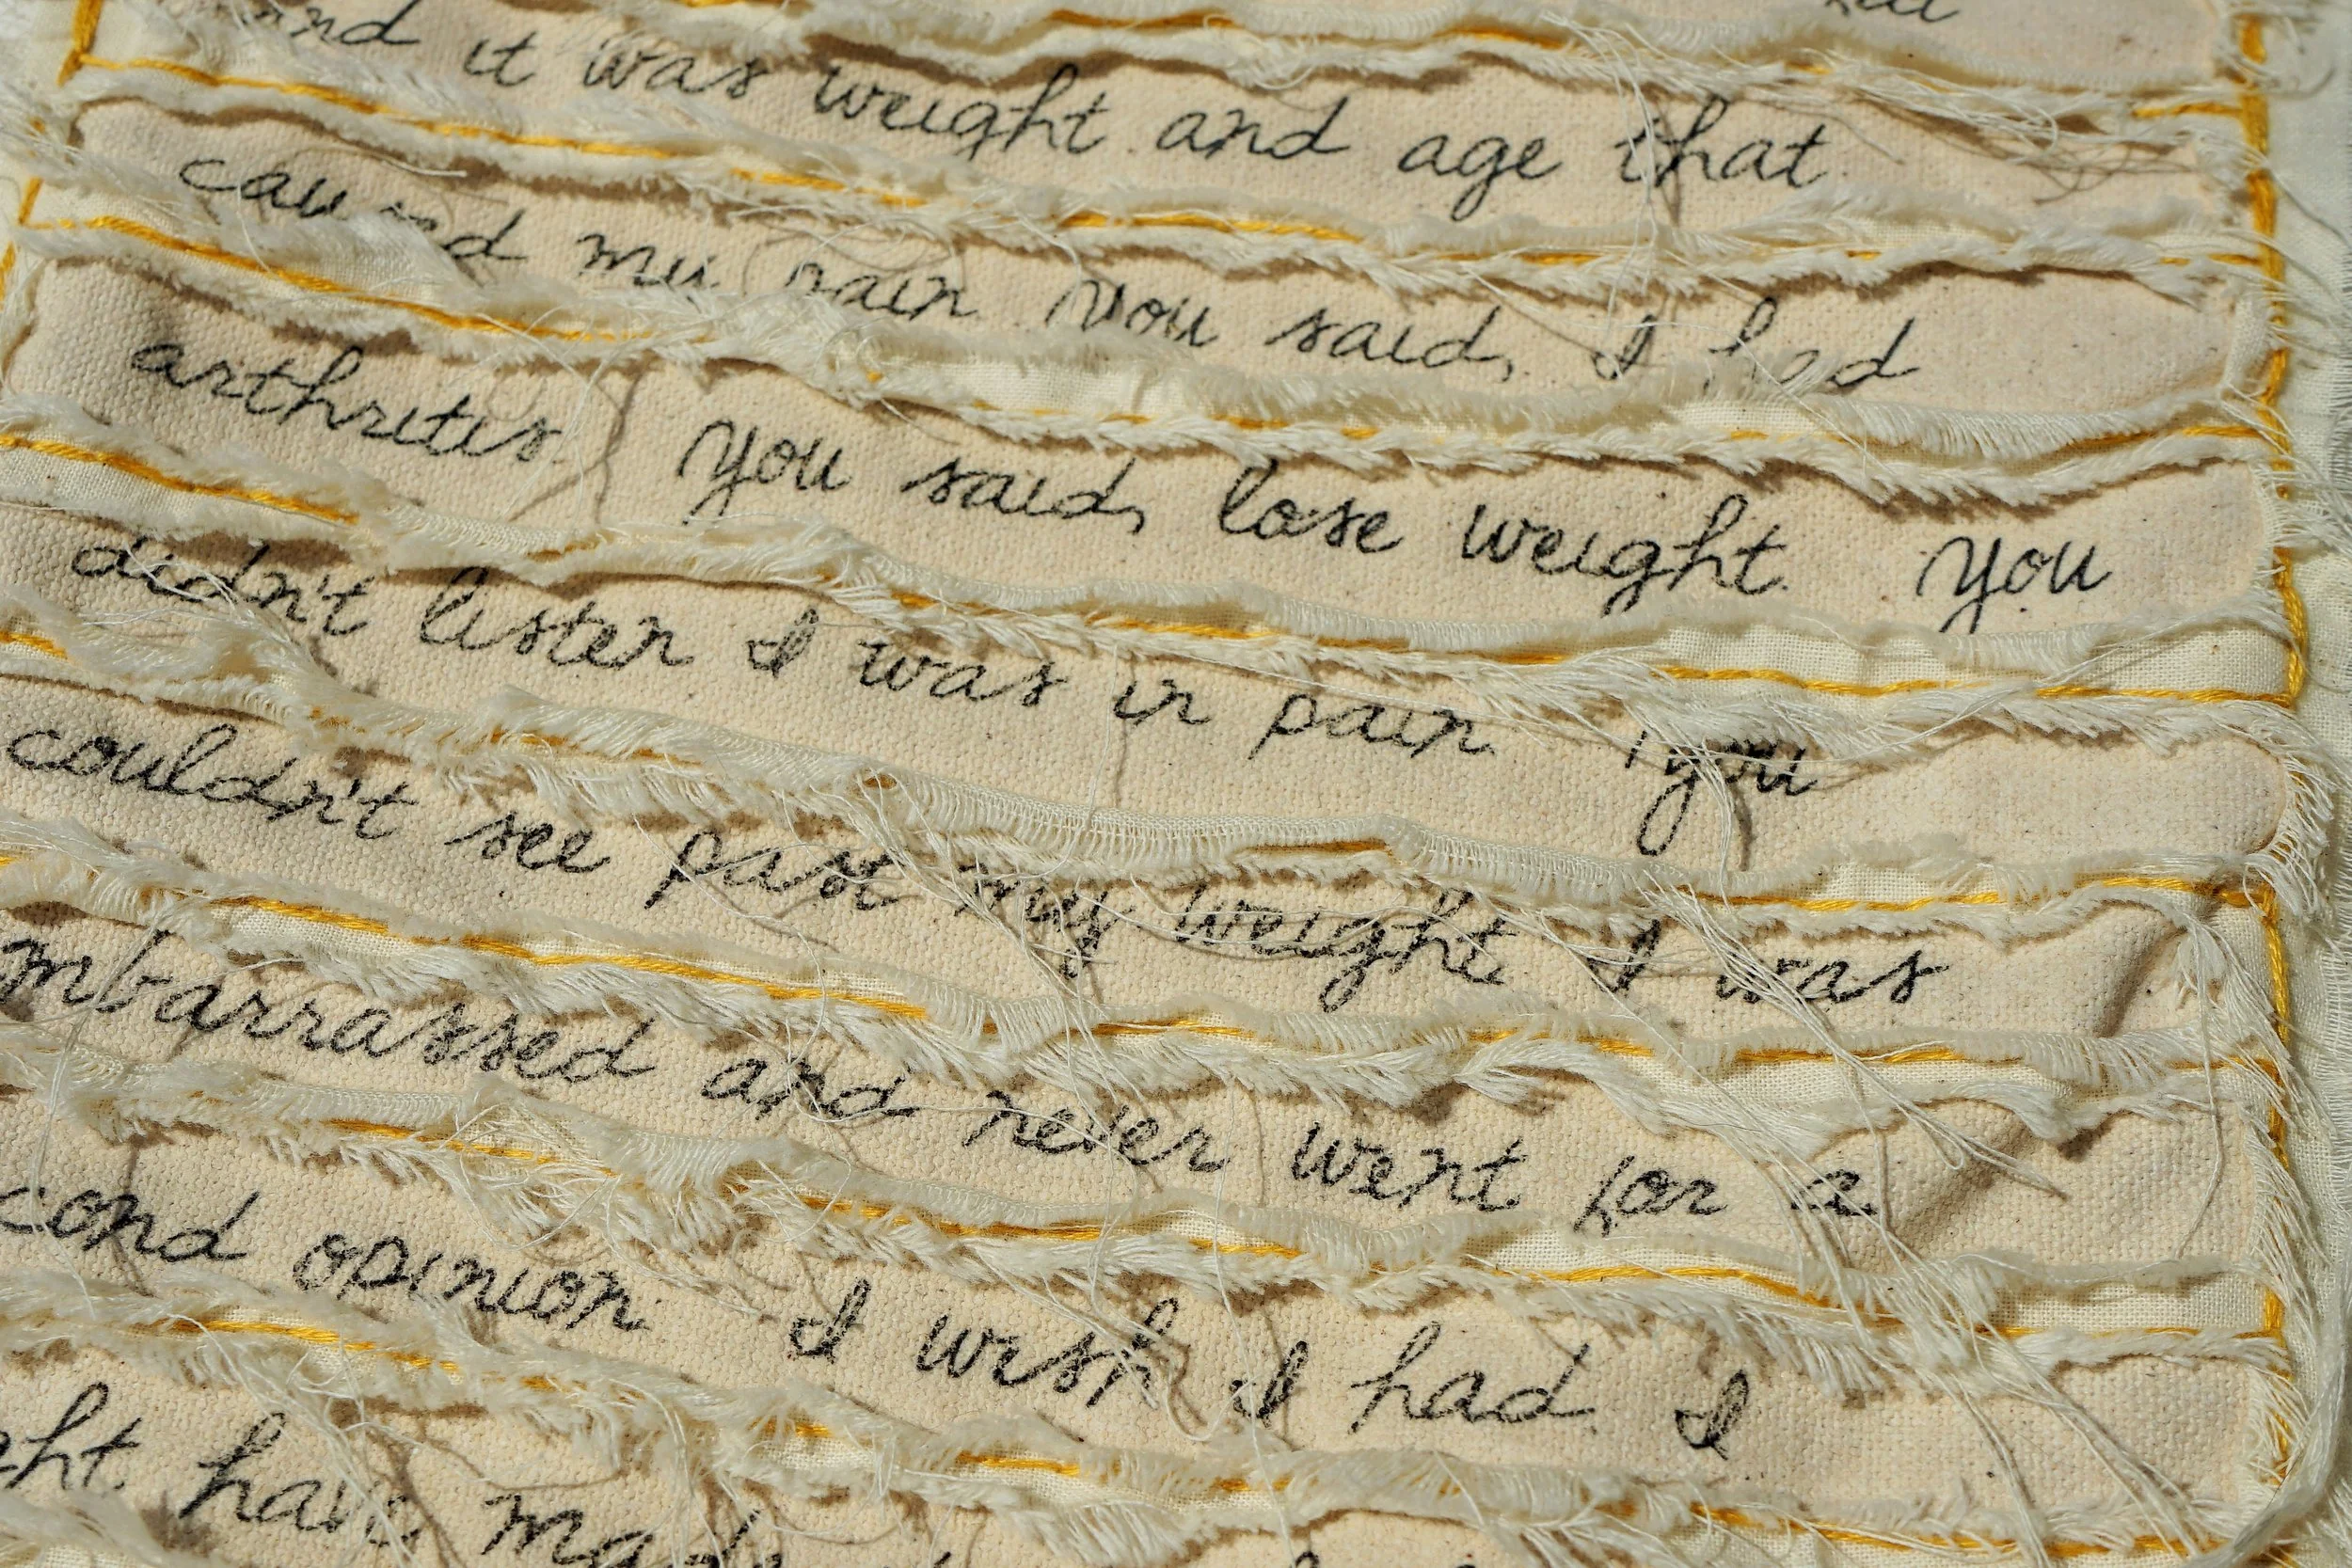 and it was weight and age that
caused my pain. You said, I had
arthritis. You said, lose weight. You
didn't listen I was in pain. You
couldn't see past my weight. I was
mbarrassed and never went for a
cond opinion. I wish I had. I
ght have mad